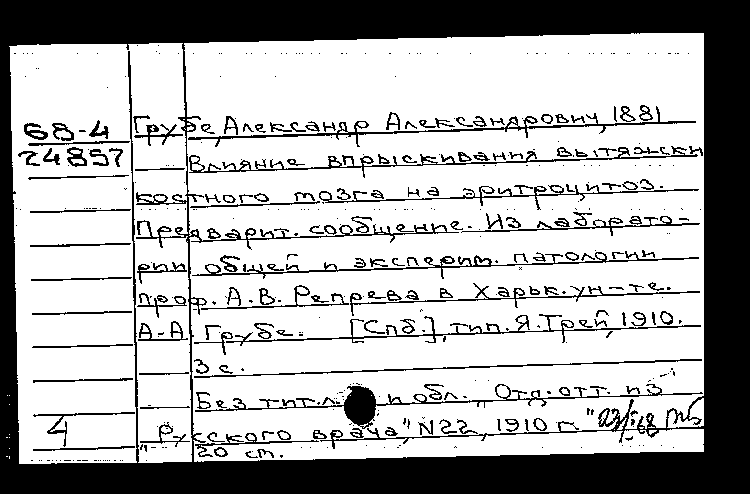 68-4 Грубе, Александр Александрович, 1881
24857 Влияние впрыскивания вытяжки
костного мозга на эритроцитоз.
Предварит. сообщение. Из лаборато-
рии общей и эксперим. патологии
проф. А.В. Репрева в Харьк. ун-те.
А-А. Грубе. [Спб], тип. Я. Трей, 1910.
3 с.
Без тит. л. и обл., Отд. отт. из
4 "Русского врача", N22, 1910 г."
20 ст.